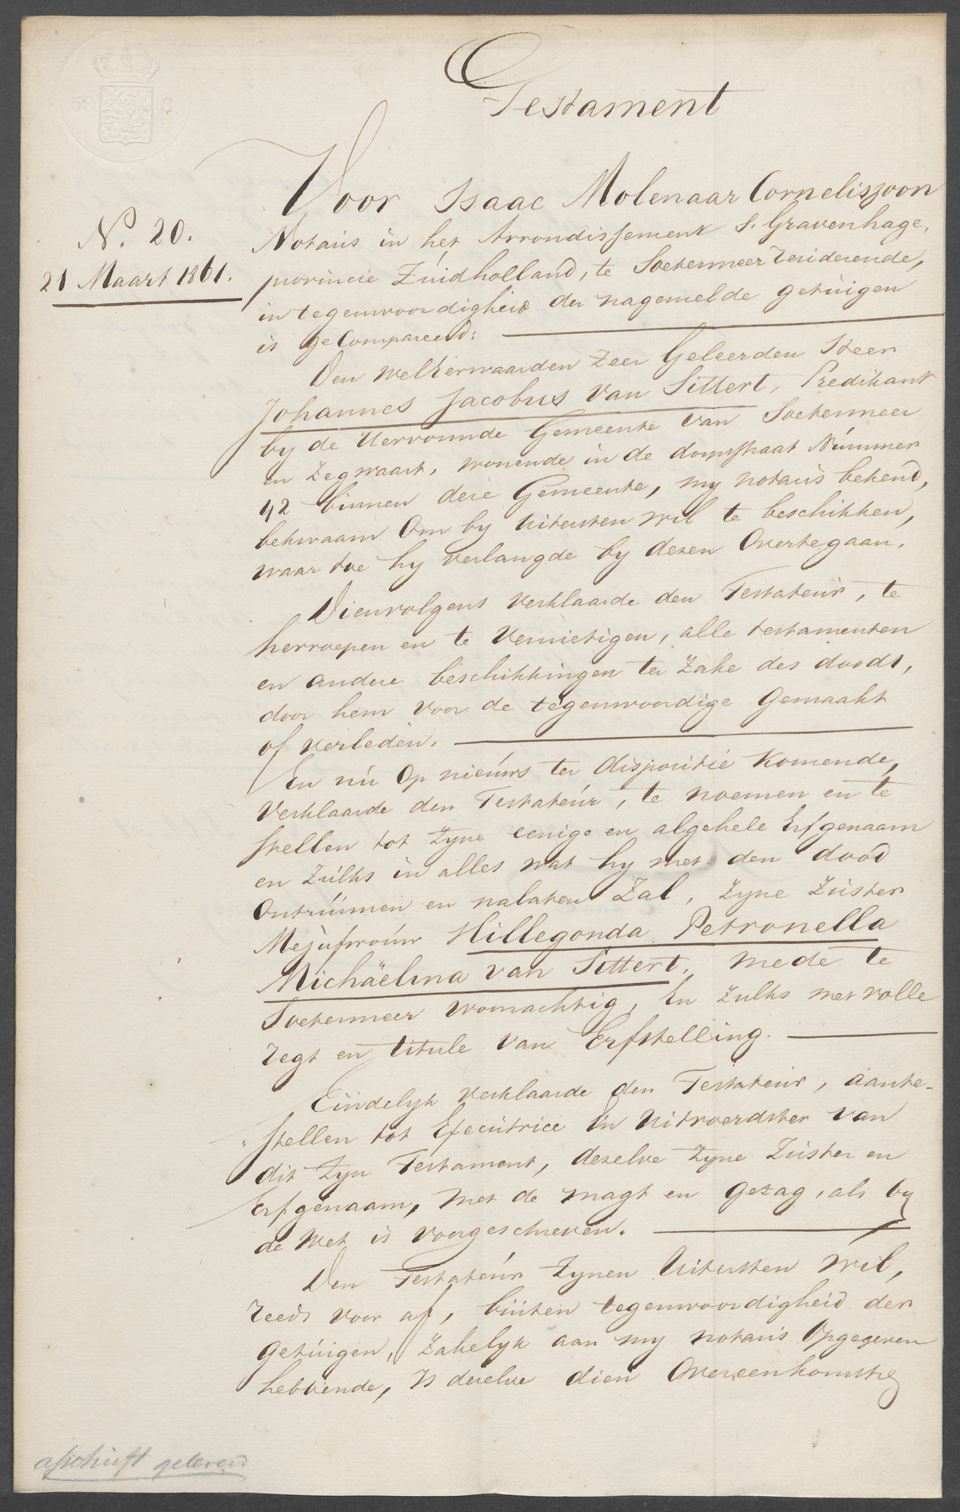 Testament
N. 20.
21 Maart 1861.
Voor Isaac Molenaar Corneliszoon
Notaris in het Arrondissement S. Gravenhage,
provincie Zuidholland, te Soetermeer resideerende,
in tegenwoordigheid der nagemelde getuigen
is gecompareerd:
Den welEerwaarden zeer Geleerden Heer
Johannes Jacobus van Sittert, Predikant
by de Hervormde Gemeente van Soetermeer
en Zegwaart, wonende in de dorpstraat Nummer
42 binnen deze Gemeente, my notaris bekend,
bekwaam om by uitersten wil te beschikken,
waar toe hy verlangde by dezen overtegaan.
Dienvolgens verklaarde den Testateur, te
herroepen en te vernietigen, alle testamenten
en andere beschikkingen ter zake des doods,
door hem voor de tegenwoordige gemaakt
of verleden.
En nu op nieuws ter dispositie komende,
verklaarde den Testateur, te noemen en te
stellen tot zyne eenige en algehele Erfgenaam
en zulks in alles wat hy met den dood
ontruimen en nalaten zal, zyne zuster
Mejufvrouw Hillegonda Petronella
Michäelina van Sittert, mede te
Soetermeer woonachtig, En zulks met volle
regt en titule van Erfstelling.
Eindelyk verklaarde den Testateur, aante-
stellen tot Executrice en Uitvoerdster van
dit zyn Testament, dezelve zyne zuster en
Erfgenaam, met de magt en gezag, als by
de wet is voorgeschreven.
Den Testateur zynen Uitersten wil,
reeds voor af, buiten tegenwoordigheid der
getuigen, zakelyk aan my notaris opgegeven
hebbende, Is dezelve dien overeenkomstig
afschrift geleverd